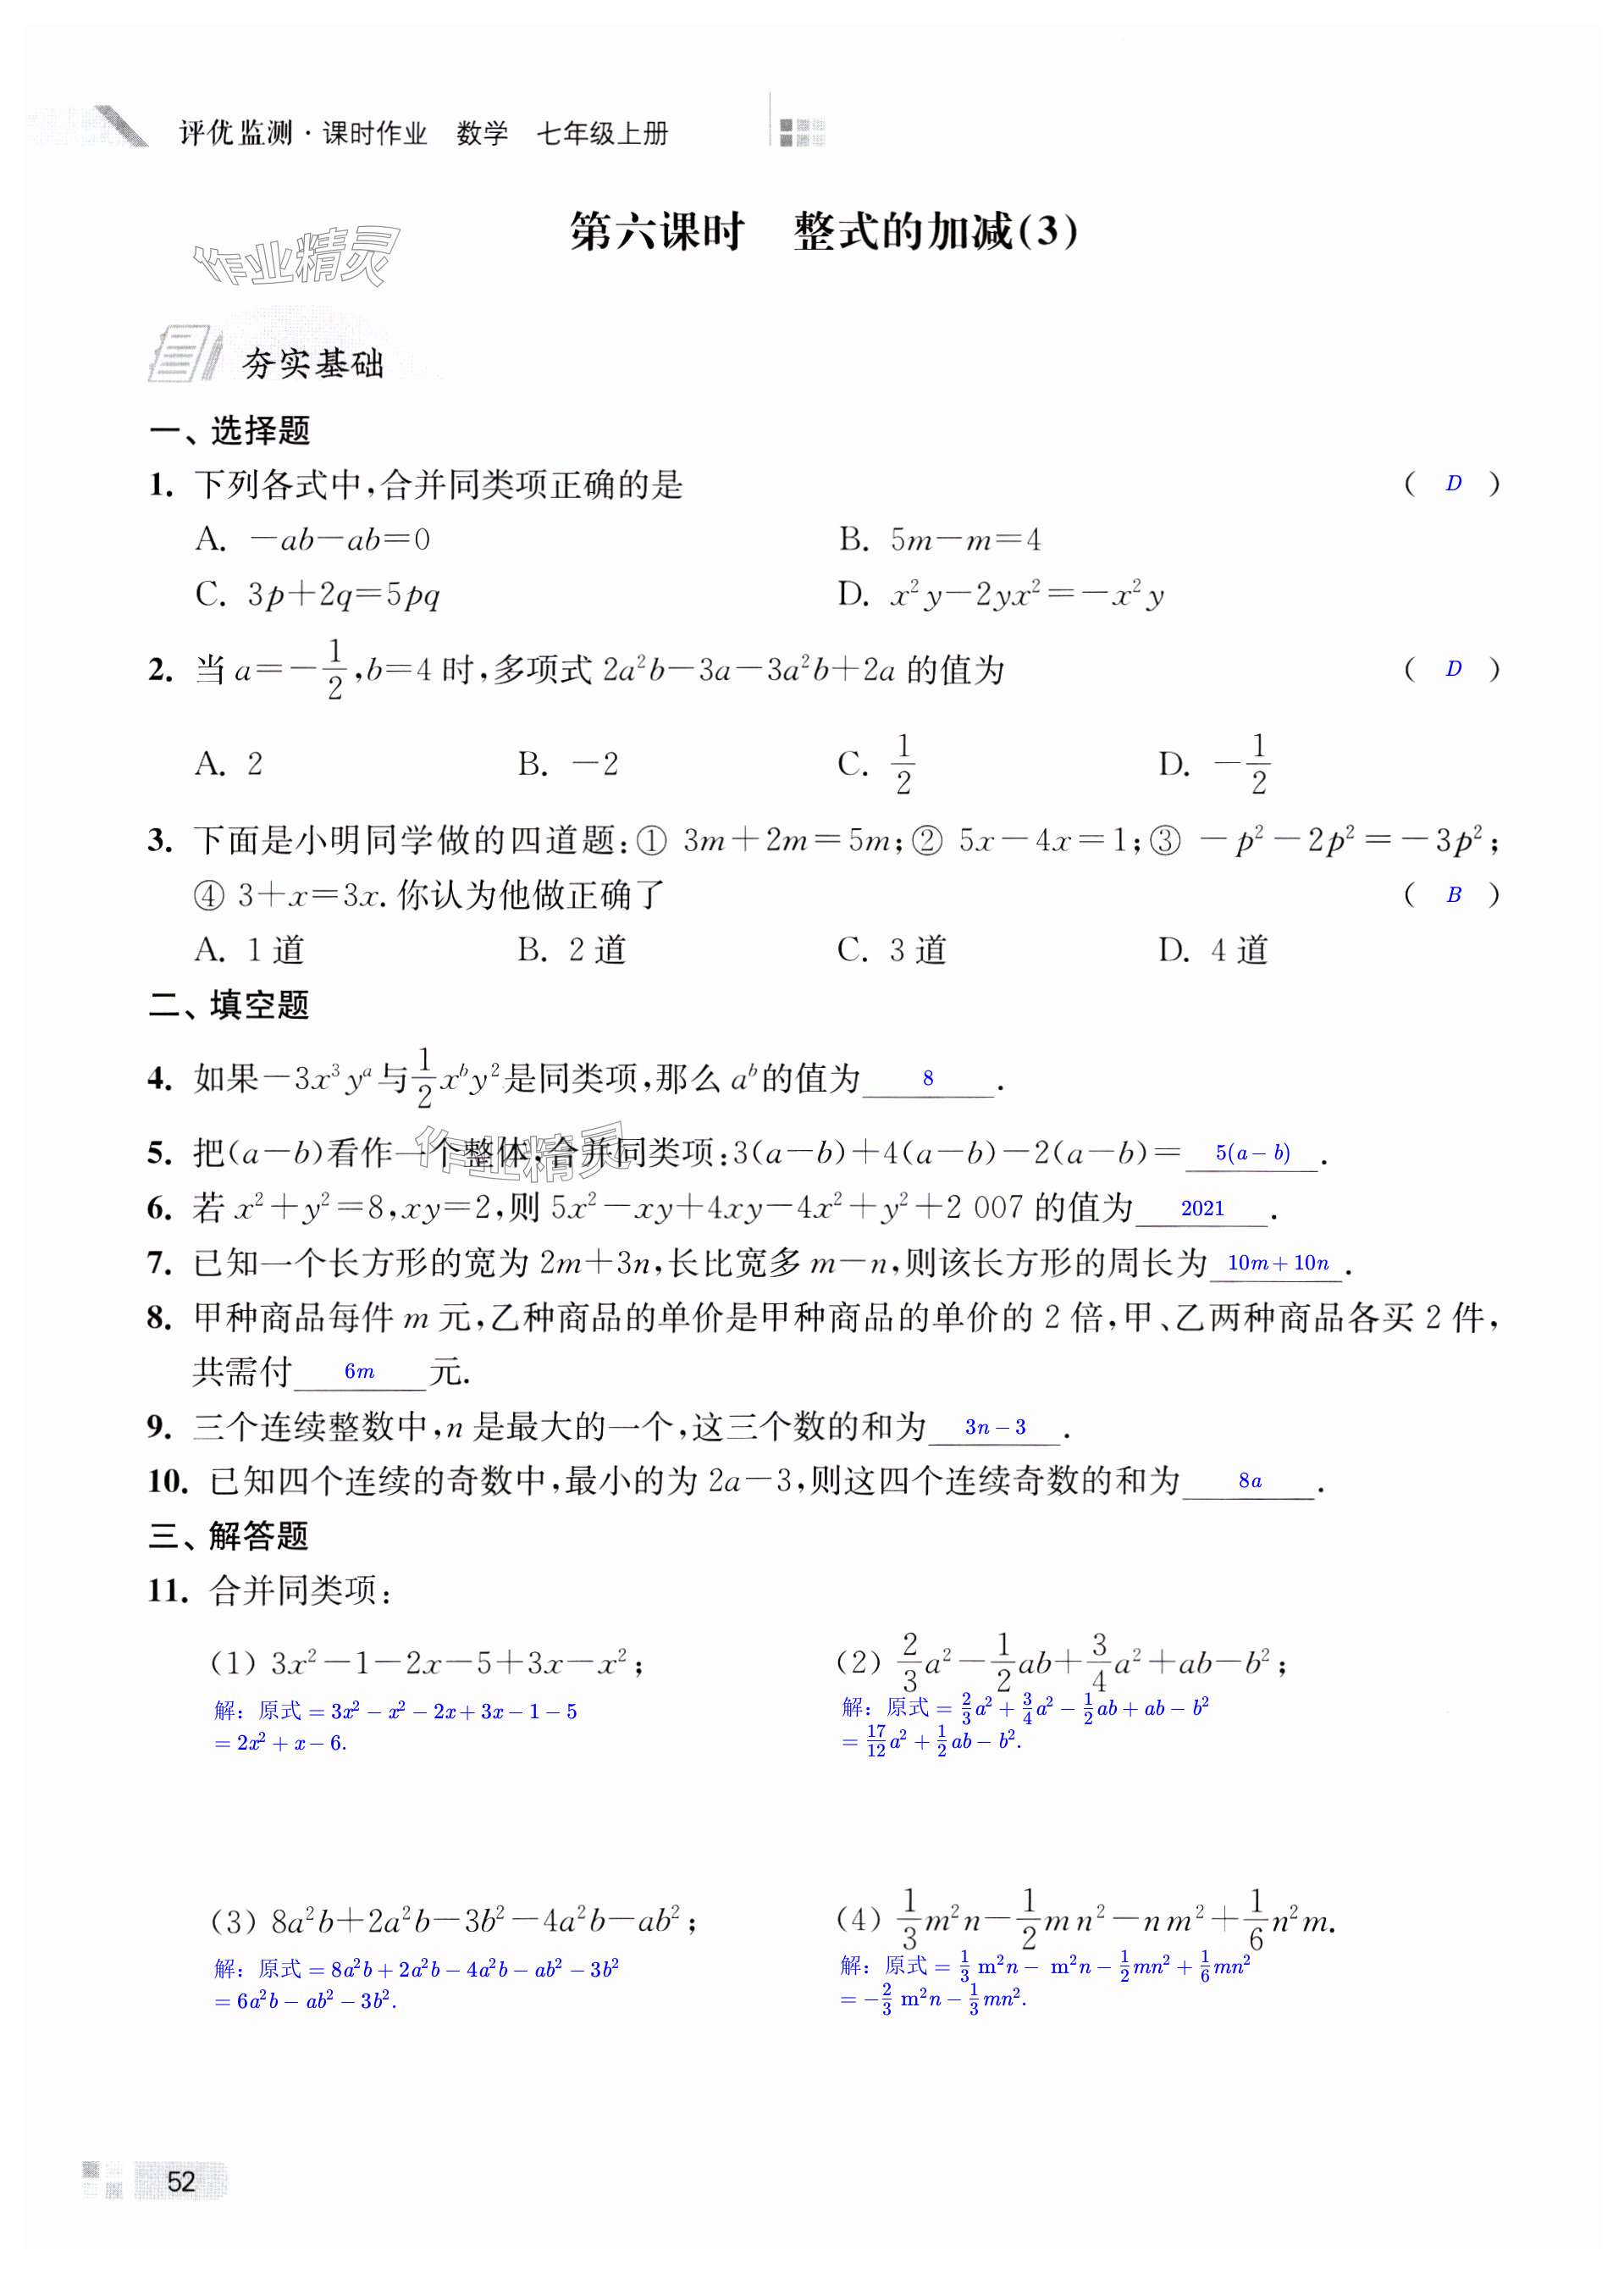 评优监测·课时作业 数学 七年级上册
第六课时 整式的加减(3)
作业精灵
夯实基础
一、选择题
1. 下列各式中,合并同类项正确的是 ( D )
A. －ab－ab＝0 B. 5m－m＝4
C. 3p＋2q＝5pq D. x²y－2yx²＝－x²y
2. 当 a＝－1/2,b＝4 时,多项式 2a²b－3a－3a²b＋2a 的值为 ( D )
A. 2 B. －2 C. 1/2 D. －1/2
3. 下面是小明同学做的四道题:① 3m＋2m＝5m;② 5x－4x＝1;③ －p²－2p²＝－3p²;
④ 3＋x＝3x. 你认为他做正确了 ( B )
A. 1 道 B. 2 道 C. 3 道 D. 4 道
二、填空题
4. 如果－3x³yᵃ与1/2xᵇy²是同类项,那么 aᵇ的值为 8 .
5. 把(a－b)看作一个整体,合并同类项:3(a－b)＋4(a－b)－2(a－b)＝ 5(a－b) .
作业精灵
6. 若 x²＋y²＝8,xy＝2,则 5x²－xy＋4xy－4x²＋y²＋2 007 的值为 2021 .
7. 已知一个长方形的宽为 2m＋3n,长比宽多 m－n,则该长方形的周长为 10m＋10n .
8. 甲种商品每件 m 元,乙种商品的单价是甲种商品的单价的 2 倍,甲、乙两种商品各买 2 件,
共需付 6m 元.
9. 三个连续整数中,n 是最大的一个,这三个数的和为 3n－3 .
10. 已知四个连续的奇数中,最小的为 2a－3,则这四个连续奇数的和为 8a .
三、解答题
11. 合并同类项:
(1) 3x²－1－2x－5＋3x－x²; (2) 2/3a²－1/2ab＋3/4a²＋ab－b²;
解：原式＝3x²－x²－2x＋3x－1－5 解：原式＝2/3a²＋3/4a²－1/2ab＋ab－b²
＝2x²＋x－6. ＝17/12a²＋1/2ab－b².
(3) 8a²b＋2a²b－3b²－4a²b－ab²; (4) 1/3m²n－1/2mn²－nm²＋1/6n²m.
解：原式＝8a²b＋2a²b－4a²b－ab²－3b² 解：原式＝1/3m²n－m²n－1/2mn²＋1/6mn²
＝6a²b－ab²－3b². ＝－2/3m²n－1/3mn².
52